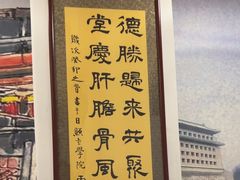 德勝歸來共聚
堂慶肝膽骨風
歲次癸卯之
書于日
學院